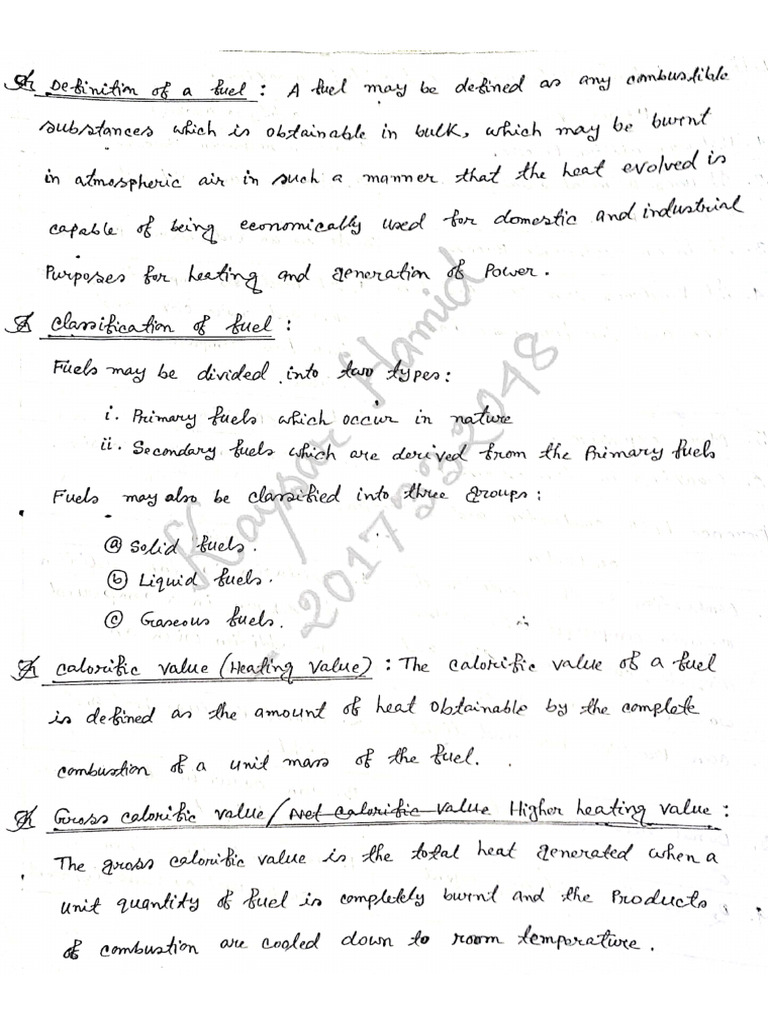 Definition of a fuel : A fuel may be defined as any combustible
substances which is obtainable in bulk, which may be burnt
in atmospheric air in such a manner that the heat evolved is
capable of being economically used for domestic and industrial
Purposes for heating and generation of Power.
Classification of fuel :
Fuels may be divided into two types:
i. Primary fuels which occur in nature
ii. Secondary fuels which are derived from the Primary fuels
Fuels may also be classified into three groups:
ⓐ Solid fuels.
ⓑ Liquid fuels.
ⓒ Gaseous fuels.
Calorific value (Heating value) : The calorific value of a fuel
is defined as the amount of heat obtainable by the complete
combustion of a unit mass of the fuel.
Gross calorific value/Net Calorific value Higher heating value :
The gross calorific value is the total heat generated when a
unit quantity of fuel is completely burnt and the Products
of combustion are cooled down to room temperature.
Kaysar Hamid
2017332048